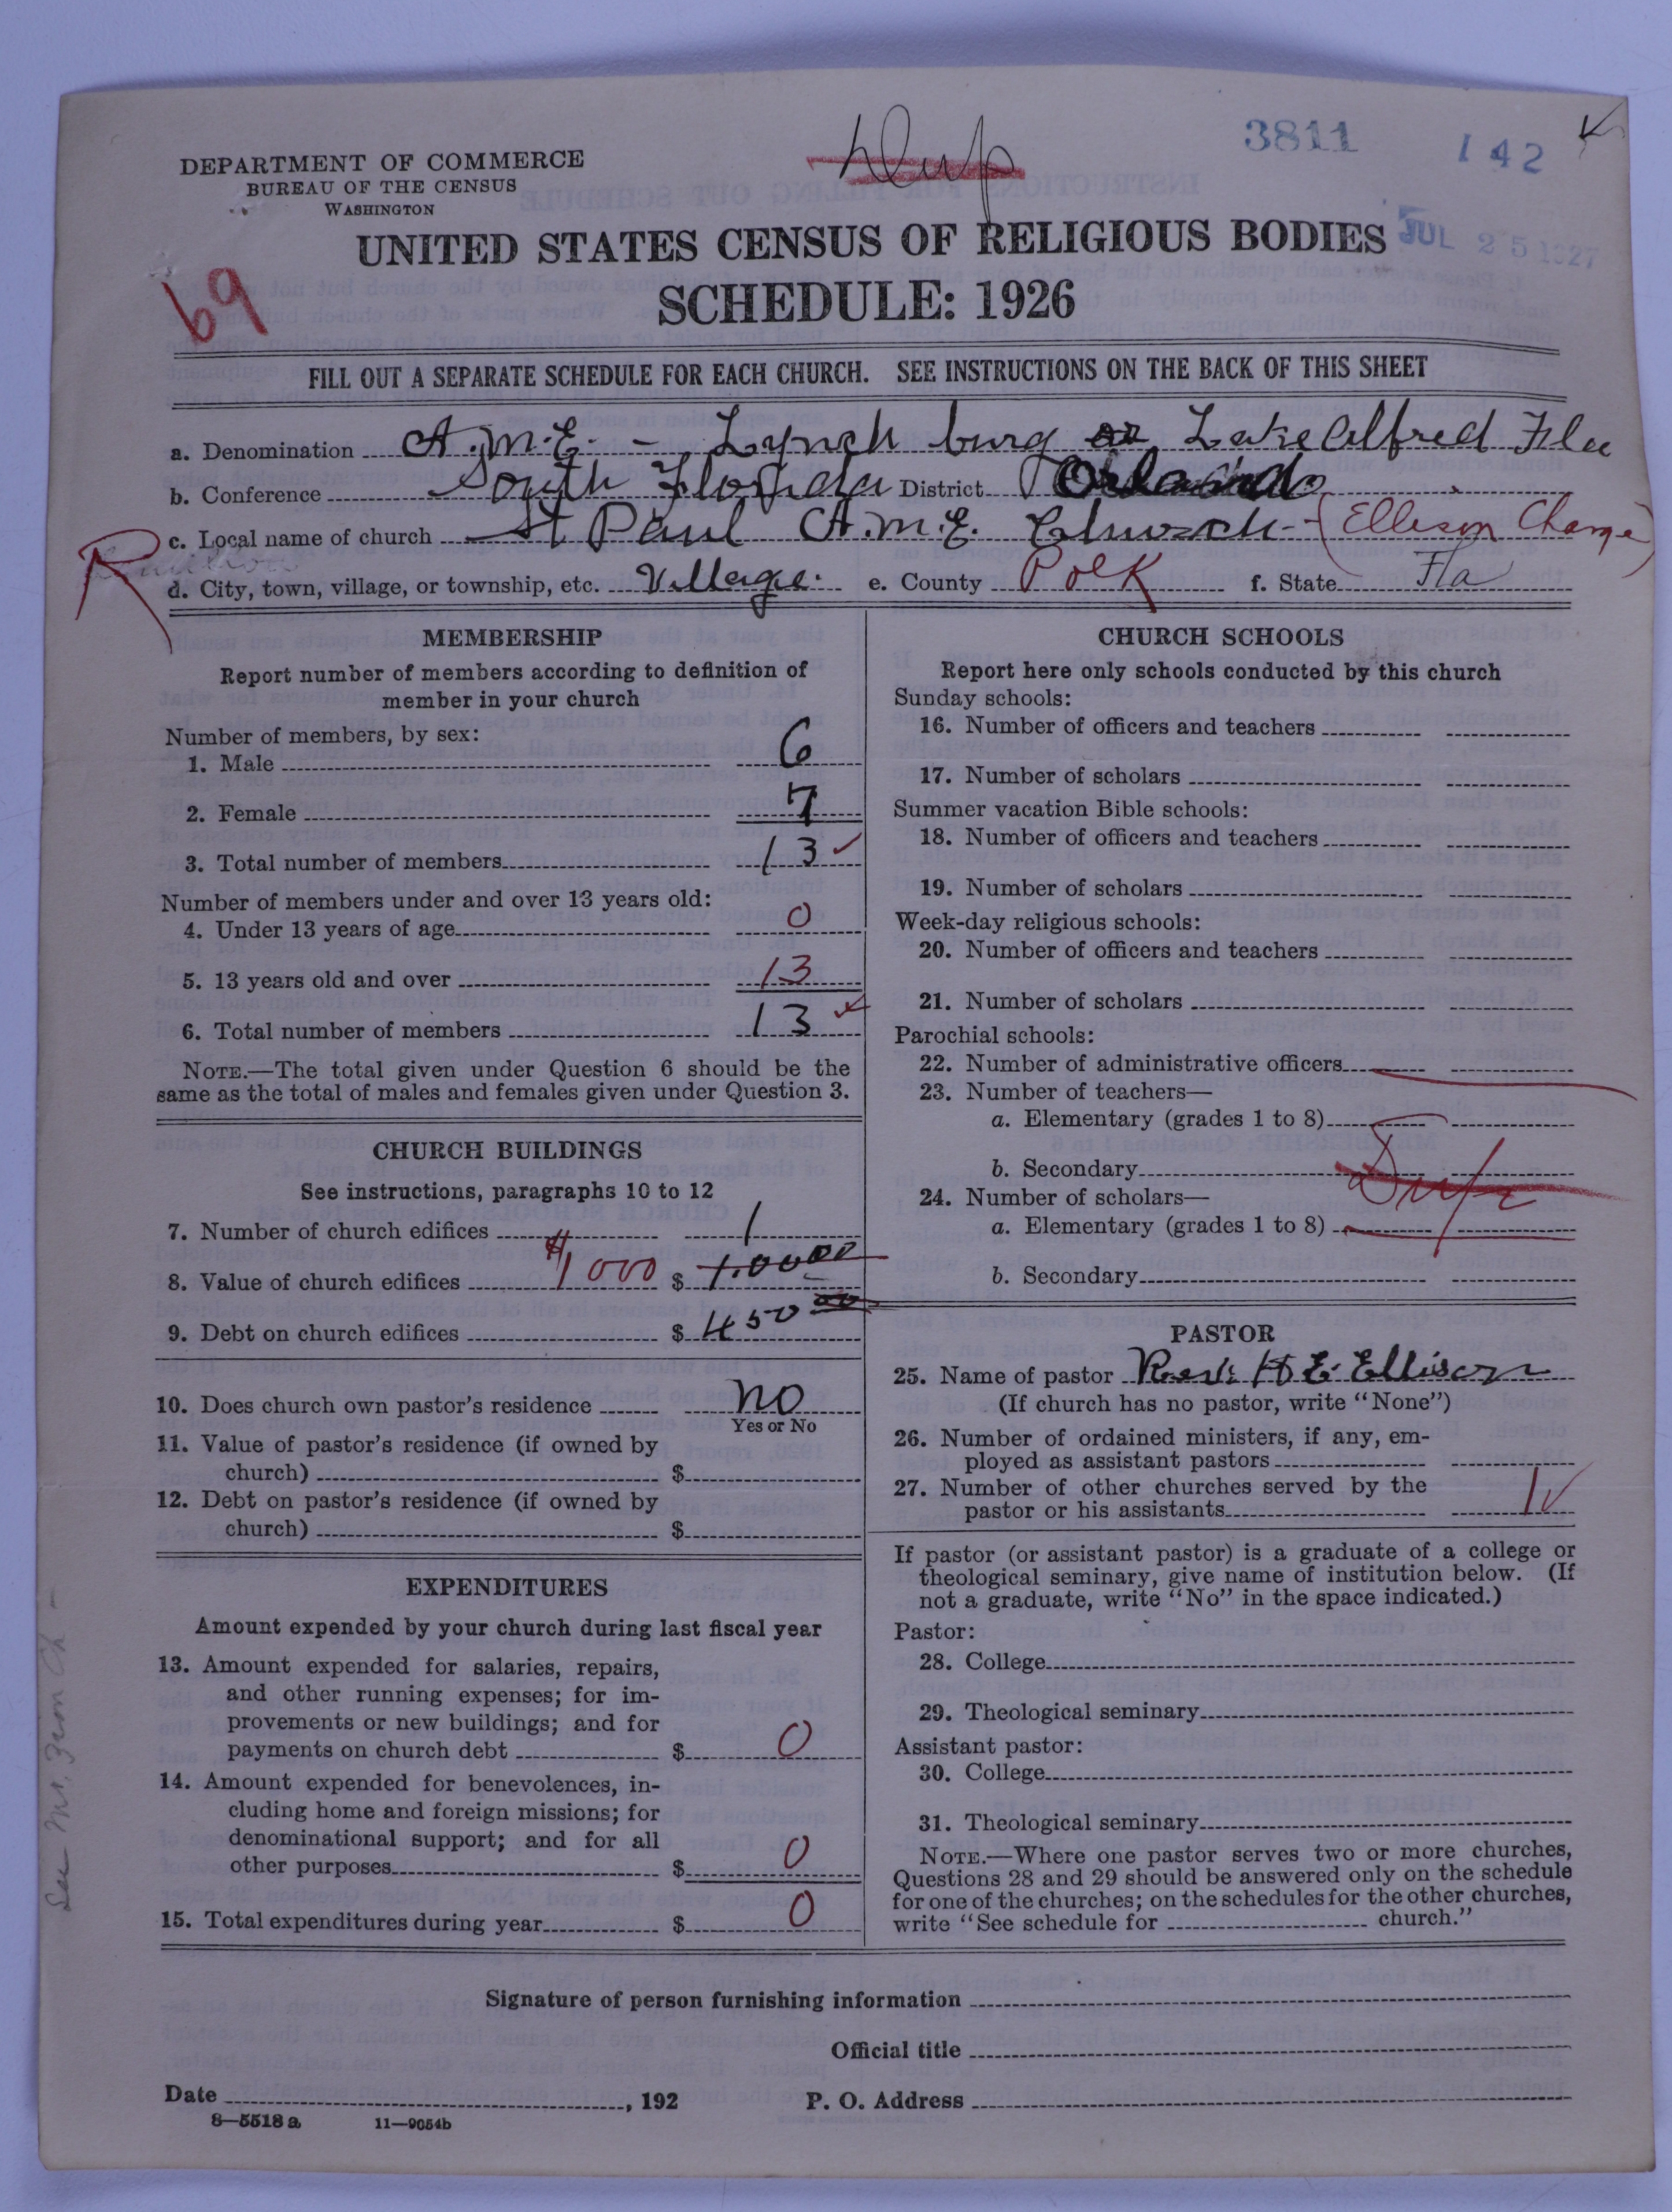 3811
142
Dup
DEPARTMENT OF COMMERCE
BUREAU OF THE CENSUS
WASHINGTON
JUL 25 1927
UNITED STATES CENSUS OF RELIGIOUS BODIES
SCHEDULE: 1926
69
FILL OUT A SEPARATE SCHEDULE FOR EACH CHURCH. SEE INSTRUCTIONS ON THE BACK OF THIS SHEET
a. Denomination A.M.E. - Lynchburg or Lake Alfred Fla
b. Conference South Florida District Orlando
c. Local name of church St Paul A.M.E. Church - (Ellison Change)
R
d. City, town, village, or township, etc. Village. e. County Polk f. State Fla
MEMBERSHIP
Report number of members according to definition of
member in your church
Number of members, by sex:
1. Male 6
2. Female 7
3. Total number of members 13
Number of members under and over 13 years old:
4. Under 13 years of age 0
5. 13 years old and over 13
6. Total number of members 13
NOTE.—The total given under Question 6 should be the
same as the total of males and females given under Question 3.
CHURCH BUILDINGS
See instructions, paragraphs 10 to 12
7. Number of church edifices 1
8. Value of church edifices $1000 $ 1.0000
9. Debt on church edifices $ 450 00
10. Does church own pastor's residence no
Yes or No
11. Value of pastor's residence (if owned by
church) $
12. Debt on pastor's residence (if owned by
church) $
EXPENDITURES
Amount expended by your church during last fiscal year
13. Amount expended for salaries, repairs,
and other running expenses; for im-
provements or new buildings; and for
payments on church debt $ 0
14. Amount expended for benevolences, in-
cluding home and foreign missions; for
denominational support; and for all
other purposes $ 0
15. Total expenditures during year $ 0
CHURCH SCHOOLS
Report here only schools conducted by this church
Sunday schools:
16. Number of officers and teachers
17. Number of scholars
Summer vacation Bible schools:
18. Number of officers and teachers
19. Number of scholars
Week-day religious schools:
20. Number of officers and teachers
21. Number of scholars
Parochial schools:
22. Number of administrative officers
23. Number of teachers—
a. Elementary (grades 1 to 8)
b. Secondary
Dup
24. Number of scholars—
a. Elementary (grades 1 to 8)
b. Secondary
PASTOR
25. Name of pastor Rev. H E. Ellison
(If church has no pastor, write "None")
26. Number of ordained ministers, if any, em-
ployed as assistant pastors
27. Number of other churches served by the
pastor or his assistants 1
If pastor (or assistant pastor) is a graduate of a college or
theological seminary, give name of institution below. (If
not a graduate, write "No" in the space indicated.)
Pastor:
28. College
29. Theological seminary
Assistant pastor:
30. College
31. Theological seminary
NOTE.—Where one pastor serves two or more churches,
Questions 28 and 29 should be answered only on the schedule
for one of the churches; on the schedules for the other churches,
write "See schedule for church."
See Mt. Zion Ch -
Signature of person furnishing information
Official title
Date , 192 P. O. Address
8—5518a 11—9054b